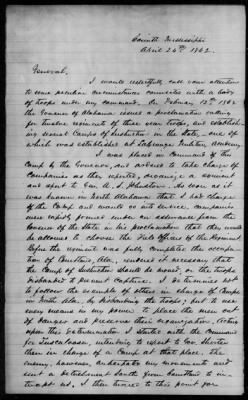 Corinth Mississippi
April 24th 1862.
General,
I would respectfully call your attention
to some peculiar circumstances connected with a body
of troops under my command. On February 12th 1862
the Governor of Alabama issued a proclamation calling
for twelve regiments of three years troops, and establish-
ing several Camps of Instruction in the State, one of
which was established at LaGrange Military Academy.
I was placed in Command of this
Camp by the Governor, and ordered to take charge of
Companies as they reported, organize a regiment
and report to Gen. A. S. Johnston. As soon as it
was known in North Alabama that I had charge
of the Camp and would go into service, companies
were rapidly formed under an assurance from the
Governor of the State in his proclamation that they would
be allowed to choose the Field Officers of the Regiment.
Before the regiment was fully complete the occupa-
tion of Tuscumbia, Ala., rendered it necessary that
the Camp of Instruction should be moved, or the troops
disbanded to prevent Capture. I determined not
to follow the example of others in charge of Camps
in North Ala. by disbanding the troops; but to use
every means in my power to place the men out
of danger and preserve their organization. Acting
upon this determination I started with the Command
for Tuscaloosa, intending to report to Gov. Shorter
then in charge of a Camp at that place. The
enemy, however, anticipated my movements and
sent a detachment South from Tuscumbia to in-
tercept us, I then turned to this point for